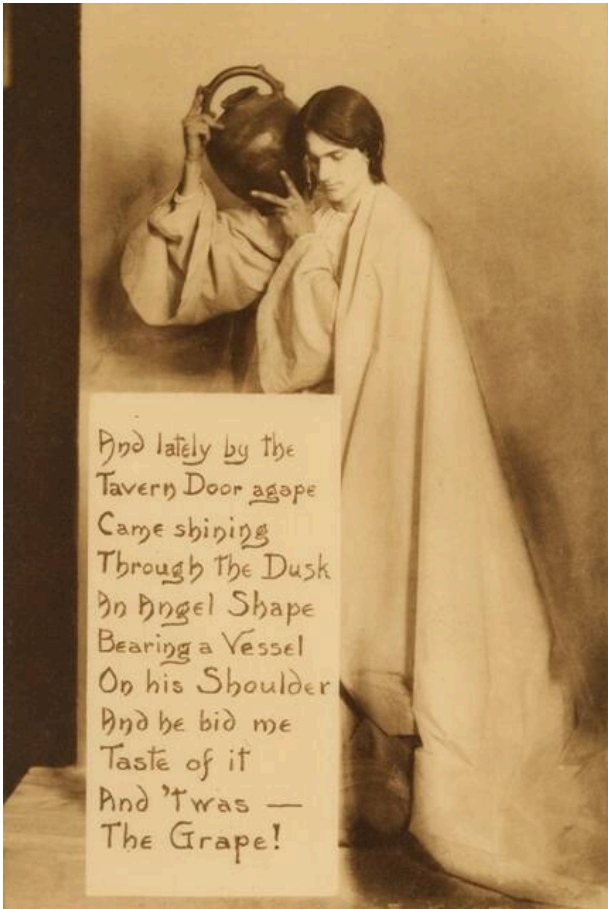 And lately by the
Tavern Door agape
Came shining
Through the Dusk
An Angel Shape
Bearing a Vessel
On his Shoulder
And he bid me
Taste of it
And 'twas —
The Grape!